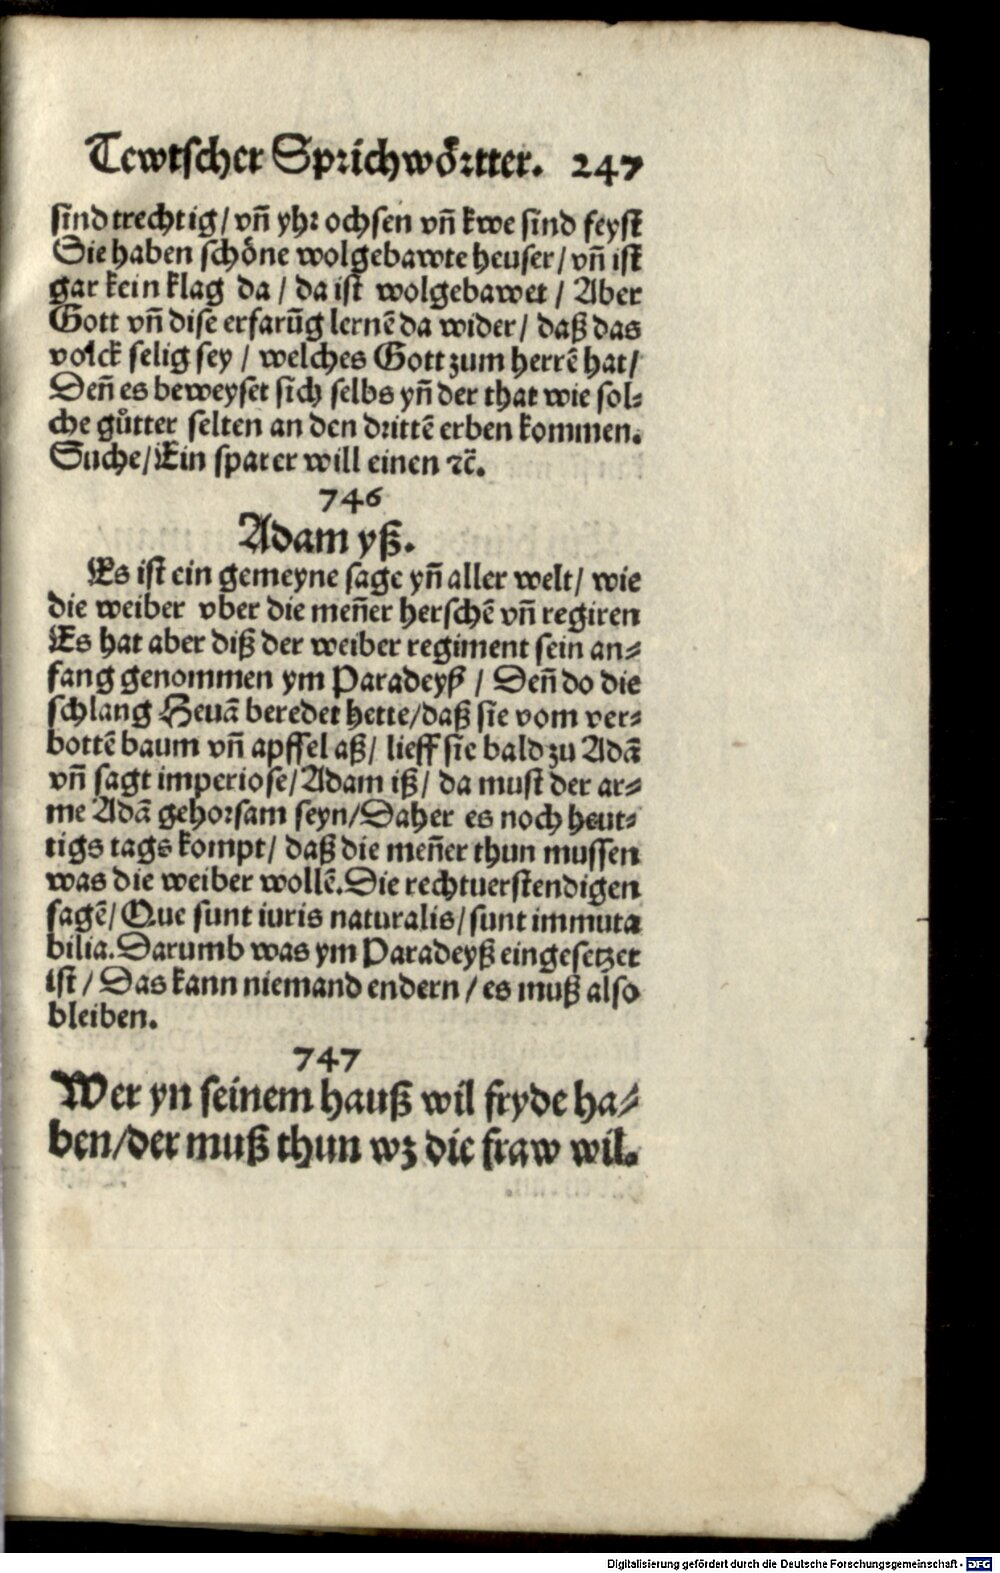 Tewtscher Sprichwörtter. 247
sind trechtig/ vñ yhr ochsen vñ kwe sind feyst
Sie haben schöne wolgebawte heuser/ vñ ist
gar kein klag da / da ist wolgebawet / Aber
Gott vñ dise erfarũg lernẽ da wider/ daß das
volck selig sey / welches Gott zum herrẽ hat/
Deñ es beweyset sich selbs yñ der that wie sol⸗
che gůtter selten an den drittẽ erben kommen.
Suche/ Ein sparer will einen ⁊c̃.
746
Adam yß.
Es ist ein gemeyne sage yñ aller welt/ wie
die weiber vber die meñer herschẽ vñ regiren
Es hat aber diß der weiber regiment sein an⸗
fang genommen ym Paradeyß / Deñ do die
schlang Heuã beredet hette/ daß sie vom ver⸗
bottẽ baum vñ apffel aß/ lieff sie bald zu Adã
vñ sagt imperiose/ Adam iß/ da must der ar⸗
me Adã gehorsam seyn/ Daher es noch heut⸗
tigs tags kompt/ daß die meñer thun mussen
was die weiber wollẽ. Die rechtuerstendigen
sagẽ/ Que sunt iuris naturalis/ sunt immuta
bilia. Darumb was ym Paradeyß eingesetzet
ist / Das kann niemand endern / es muß also
bleiben.
747
Wer yn seinem hauß wil fryde ha⸗
ben/ der muß thun wz die fraw wil.
Digitalisierung gefördert durch die Deutsche Forschungsgemeinschaft - DFG